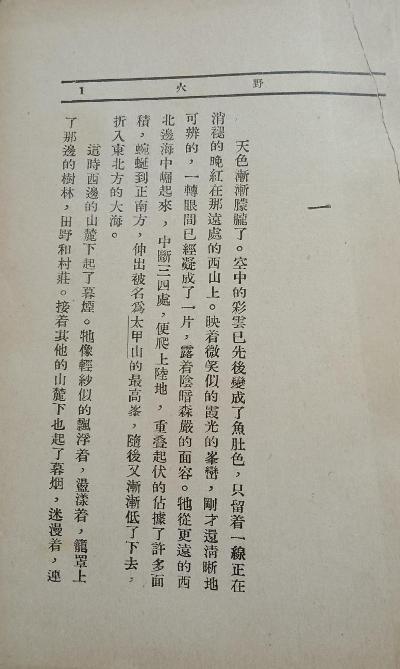 野火
1
一
天色漸漸朦朧了。空中的彩雲已先後變成了魚肚色，只留着一線正在
消褪的晚紅在那遠處的西山上。映着微笑似的霞光的峯巒，剛才還清晰地
可辨的，一轉眼間已經凝成了一片，露着陰暗森嚴的面容。牠從更遠的西
北邊海中崛起來，中斷三四處，便爬上陸地，重疊起伏的佔據了許多面
積，蜿蜒到正南方，伸出被名爲太甲山的最高峯，隨後又漸漸低了下去，
折入東北方的大海。
這時西邊的山麓下起了暮煙。牠像輕紗似的飄浮着，盪漾着，籠罩上
了那邊的樹林，田野和村莊。接着其他的山麓下也起了暮烟，迷漫着，連